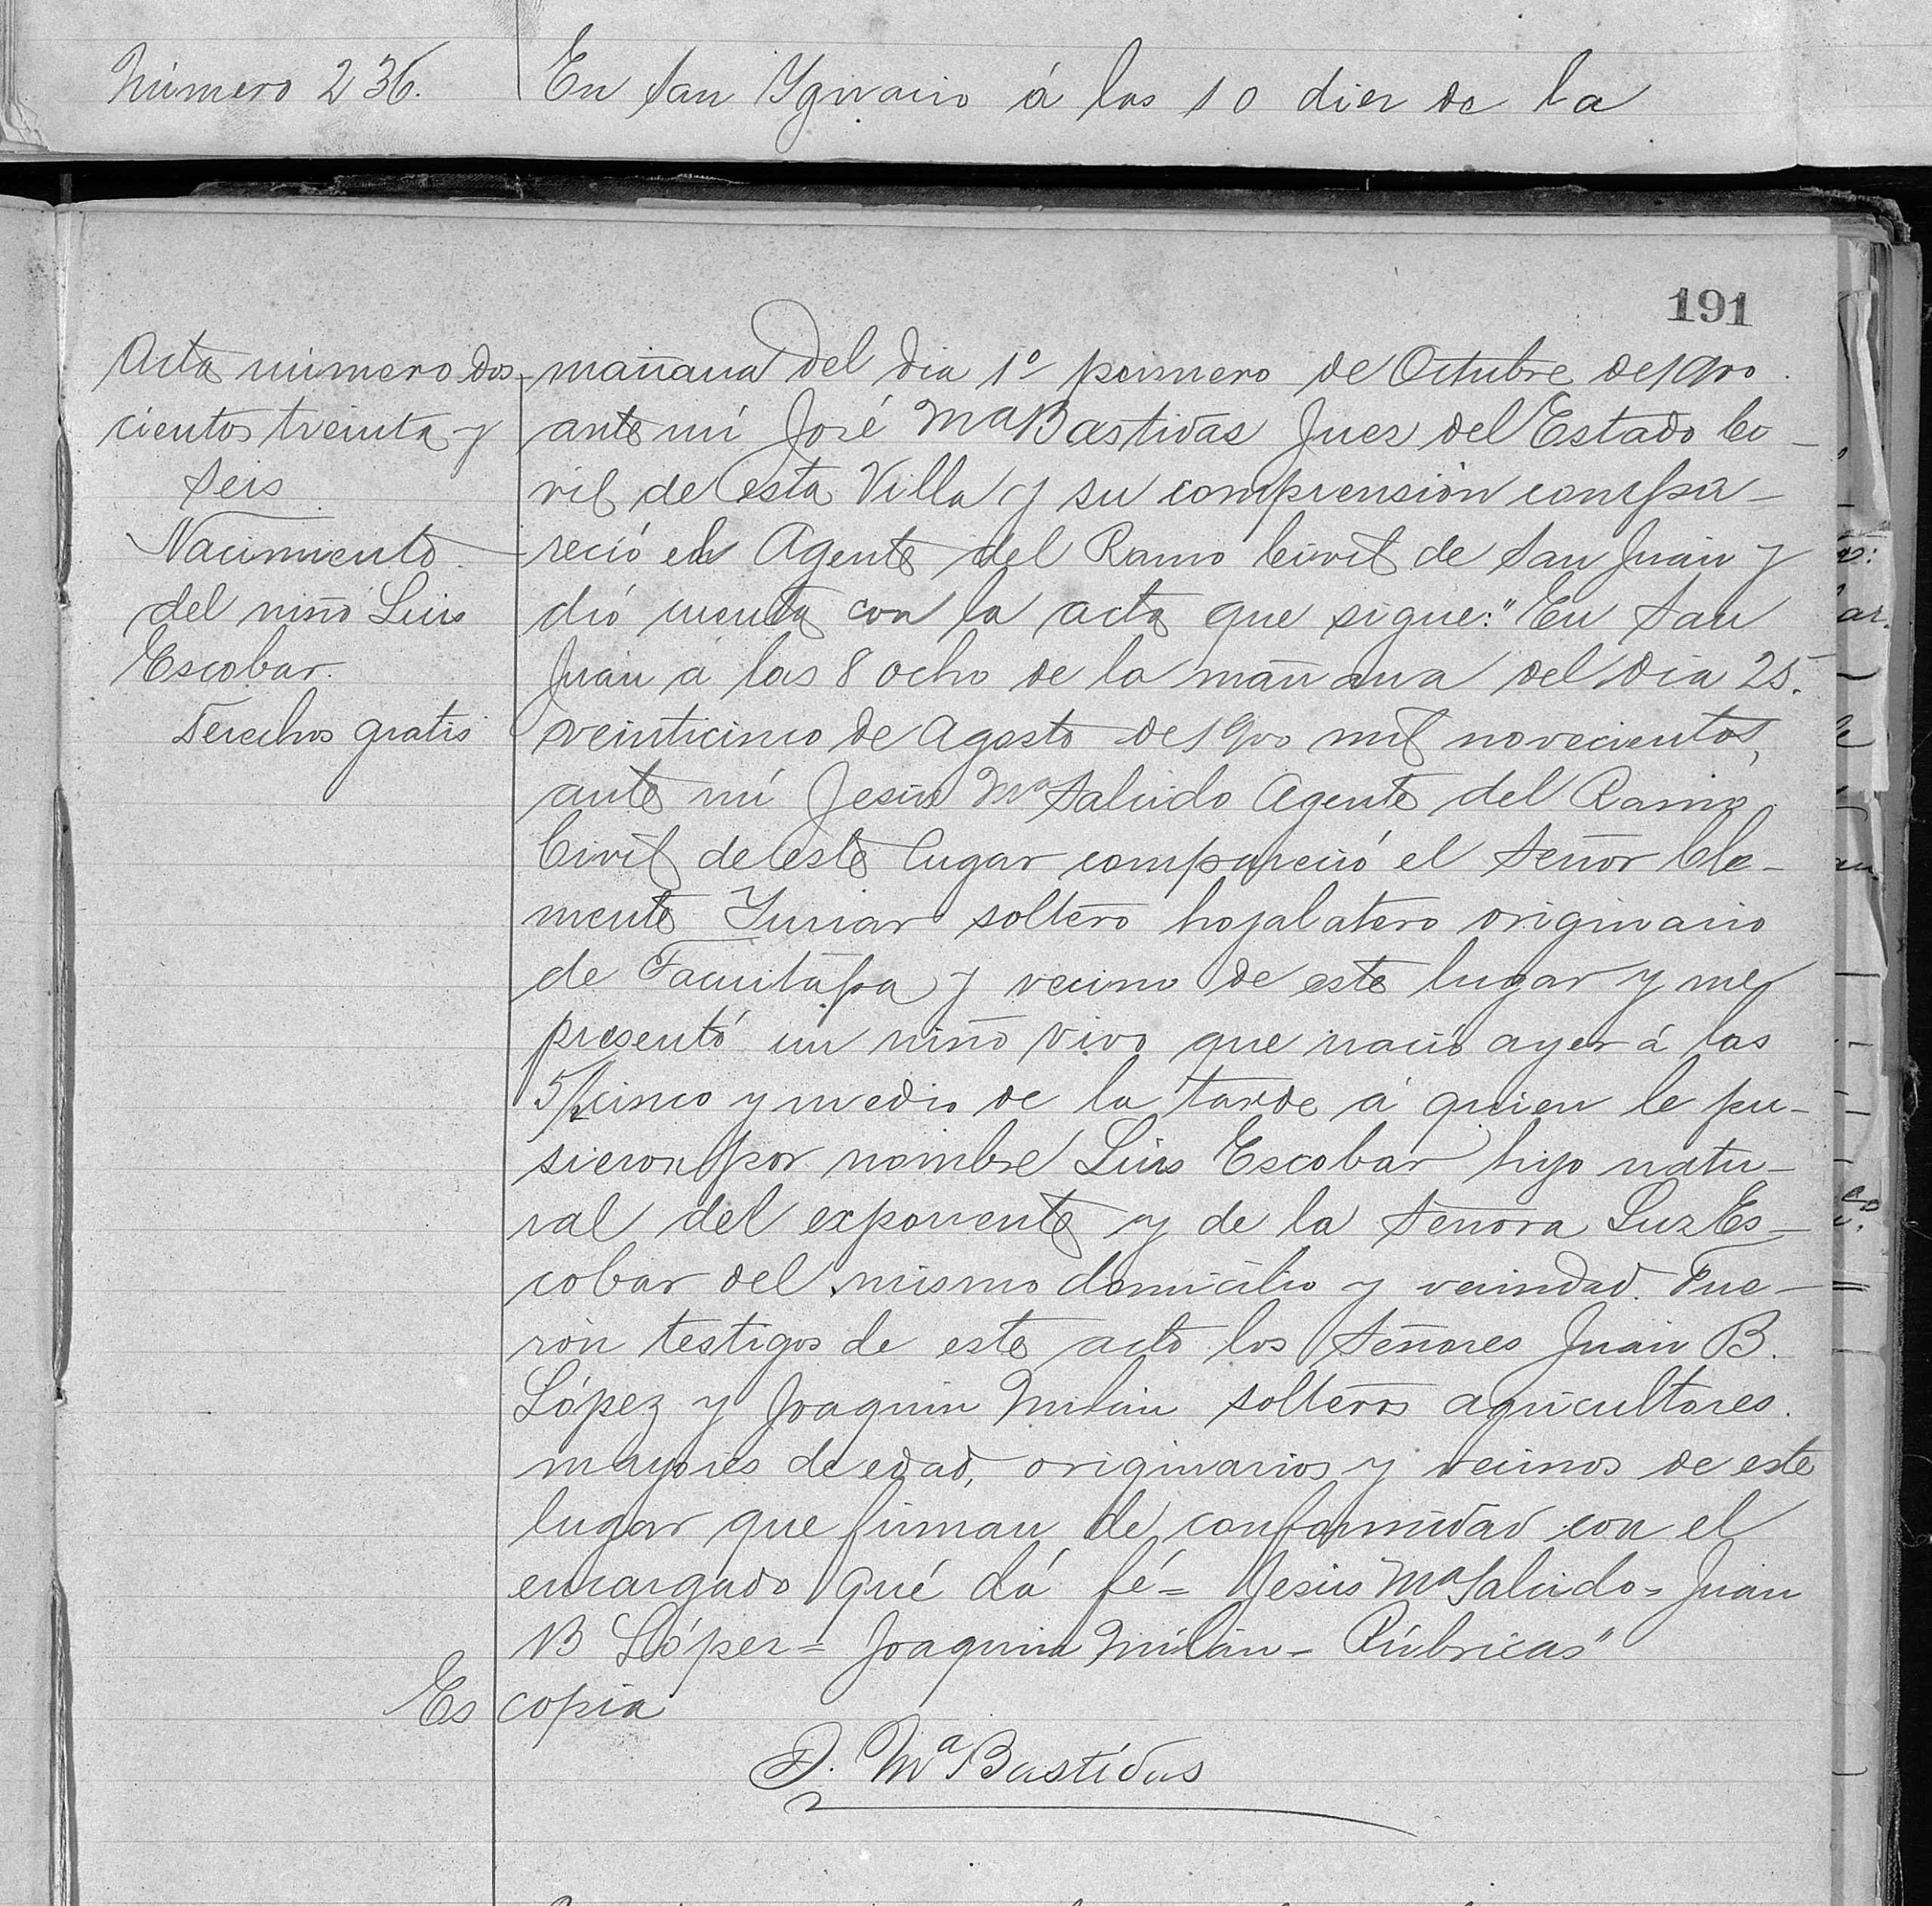 Número 236.
En San Ygnacio á las 10 diez de la
191
Acta número dos-
cientos treinta y
seis
Nacimiento
del niño Luis
Escobar.
Derechos gratis
mañana del dia 1º primero de Octubre de 1900.
ante mí José Mª Bastidas Juez del Estado Ci-
vil de esta Villa y su comprensión compa-
reció el Agente del Ramo Civil de San Juan y
dió cuenta con la acta que sigue: "En San
Juan á las 8 ocho de la mañana del dia 25.
veinticinco de Agosto de 1900 mil novecientos,
ante mí Jesús Mª Salcido Agente del Ramo
Civil de este lugar compareció el Señor Cle-
mente Yuriar soltero hojalatero originario
de Tacuitapa y vecino de este lugar y me
presentó un niño vivo que nació ayer á las
5½ cinco y media de la tarde á quien le pu-
sieron por nombre Luis Escobar hijo natu-
ral del exponente y de la Señora Luz Es-
cobar del mismo domicilio y vecindad. Fue-
rón testigos de este acto los Señores Juan B.
López y Joaquin Milán solteros agricultores.
mayores de edad, originarios y vecinos de este
lugar que firman de conformidad con el
encargado qué dá fé = Jesús Mª Salcido = Juan
B López = Joaquin Milán - Rúbricas"
Es copia
J. Mª Bastidas